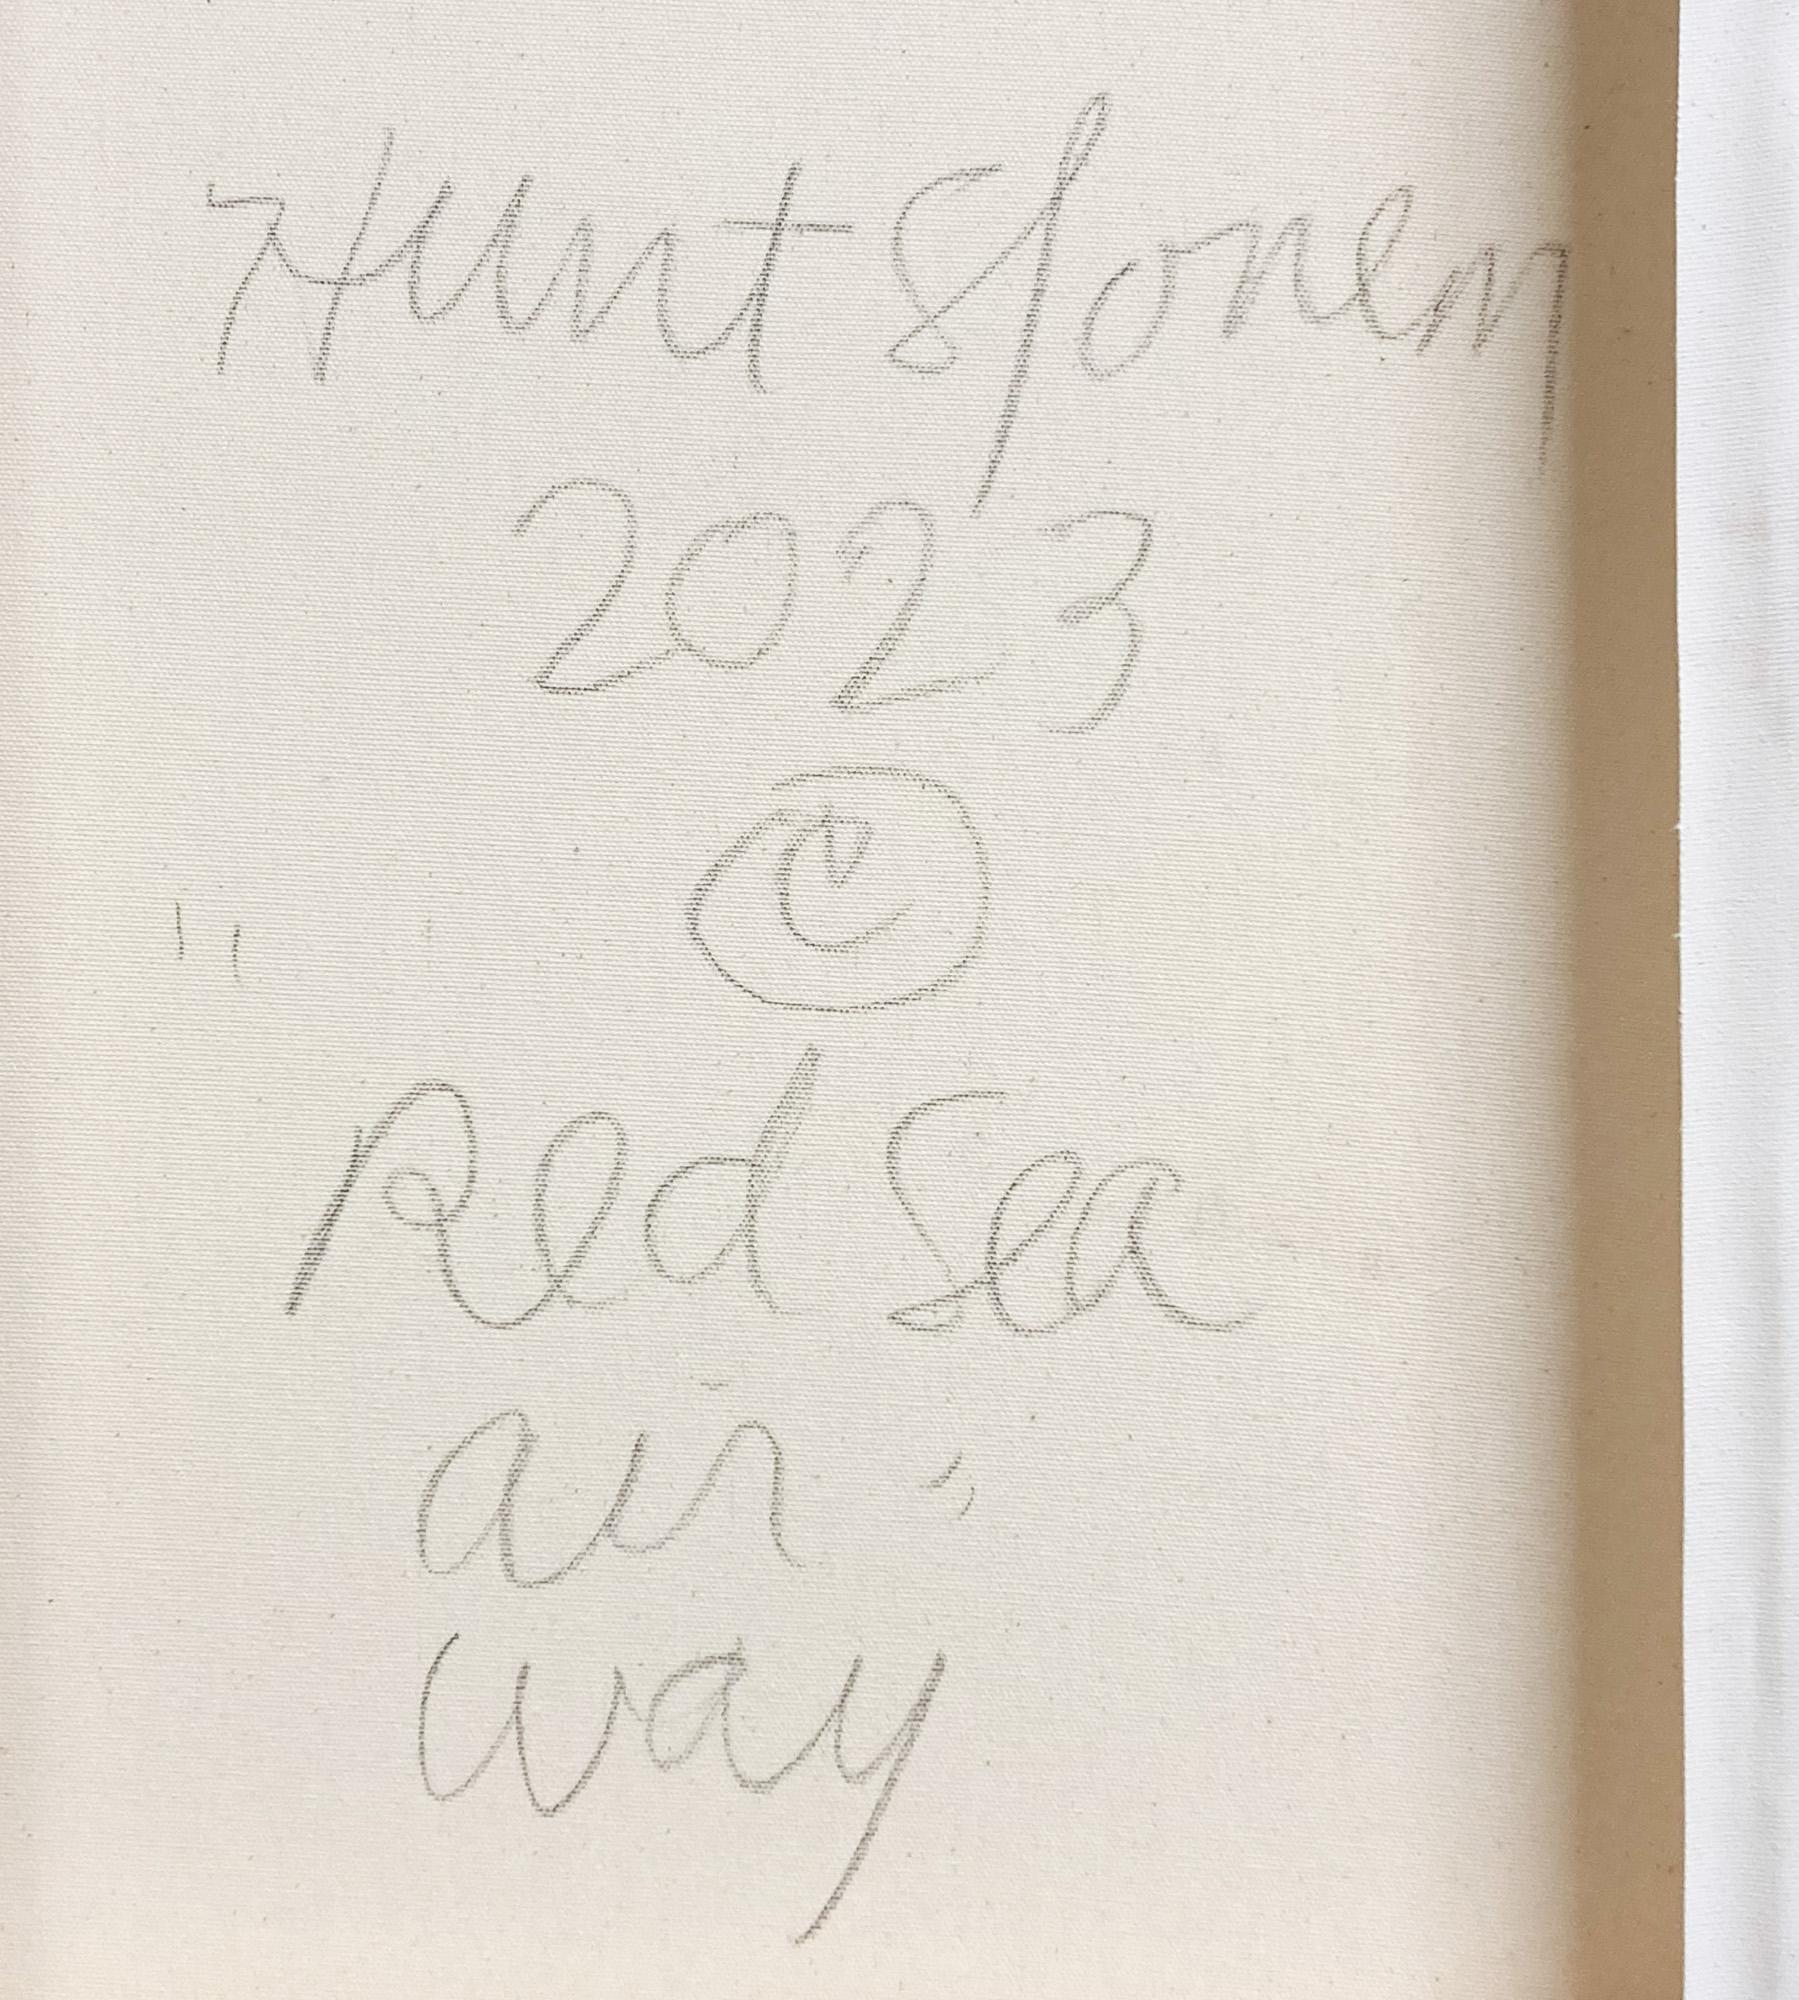 Hunt Slonem
2023
©
"Red Sea
air"
way